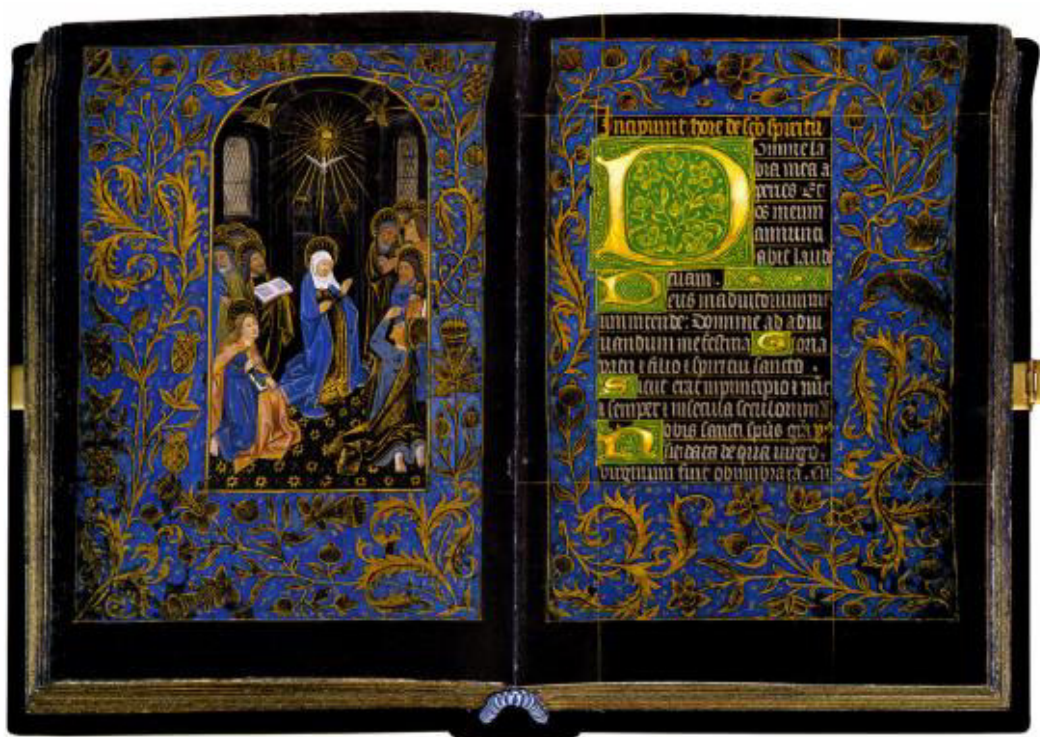 Incipiunt hore de sco spiritu
Domine la
bia mea a
peries Et
os meum
annunci
abit laude
tuam.
Deus in adiutorium me
um intende: Domine ad adiu
uandum me festina Gloria
patri & filio & spiritui sancto.
Sicut erat in principio & nūc
& semper & in secula seculorum
Nobis sancti spūs
sit data de qua uirgo.
uirginum fuit obumbrata.